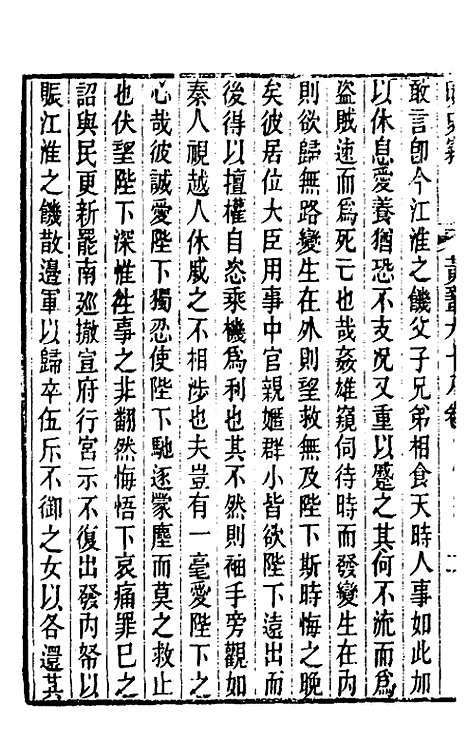 敢言卽今江淮之饑父子兄弟相食天時人事如此加
以休息愛養猶恐不支况又重以蹙之其何不流而爲
盜賊速而爲死亡也哉姦雄窺伺待時而發變生在內
則欲歸無路變生在外則望救無及陛下斯時悔之晚
矣彼居位大臣用事中官親嬺群小皆欲陛下遠出而
後得以擅權自恣乘機爲利也其不然則袖手旁觀如
秦人視越人休戚之不相涉也夫豈有一毫愛陛下之
心哉彼誠愛陛下獨忍使陛下馳逐蒙塵而莫之救止
也伏望陛下深惟往事之非翻然悔悟下哀痛罪已之
詔與民更新罷南廵撤宣府行宮示不復出發內帑以
賑江淮之饑散邊軍以歸卒伍斥不御之女以各還其